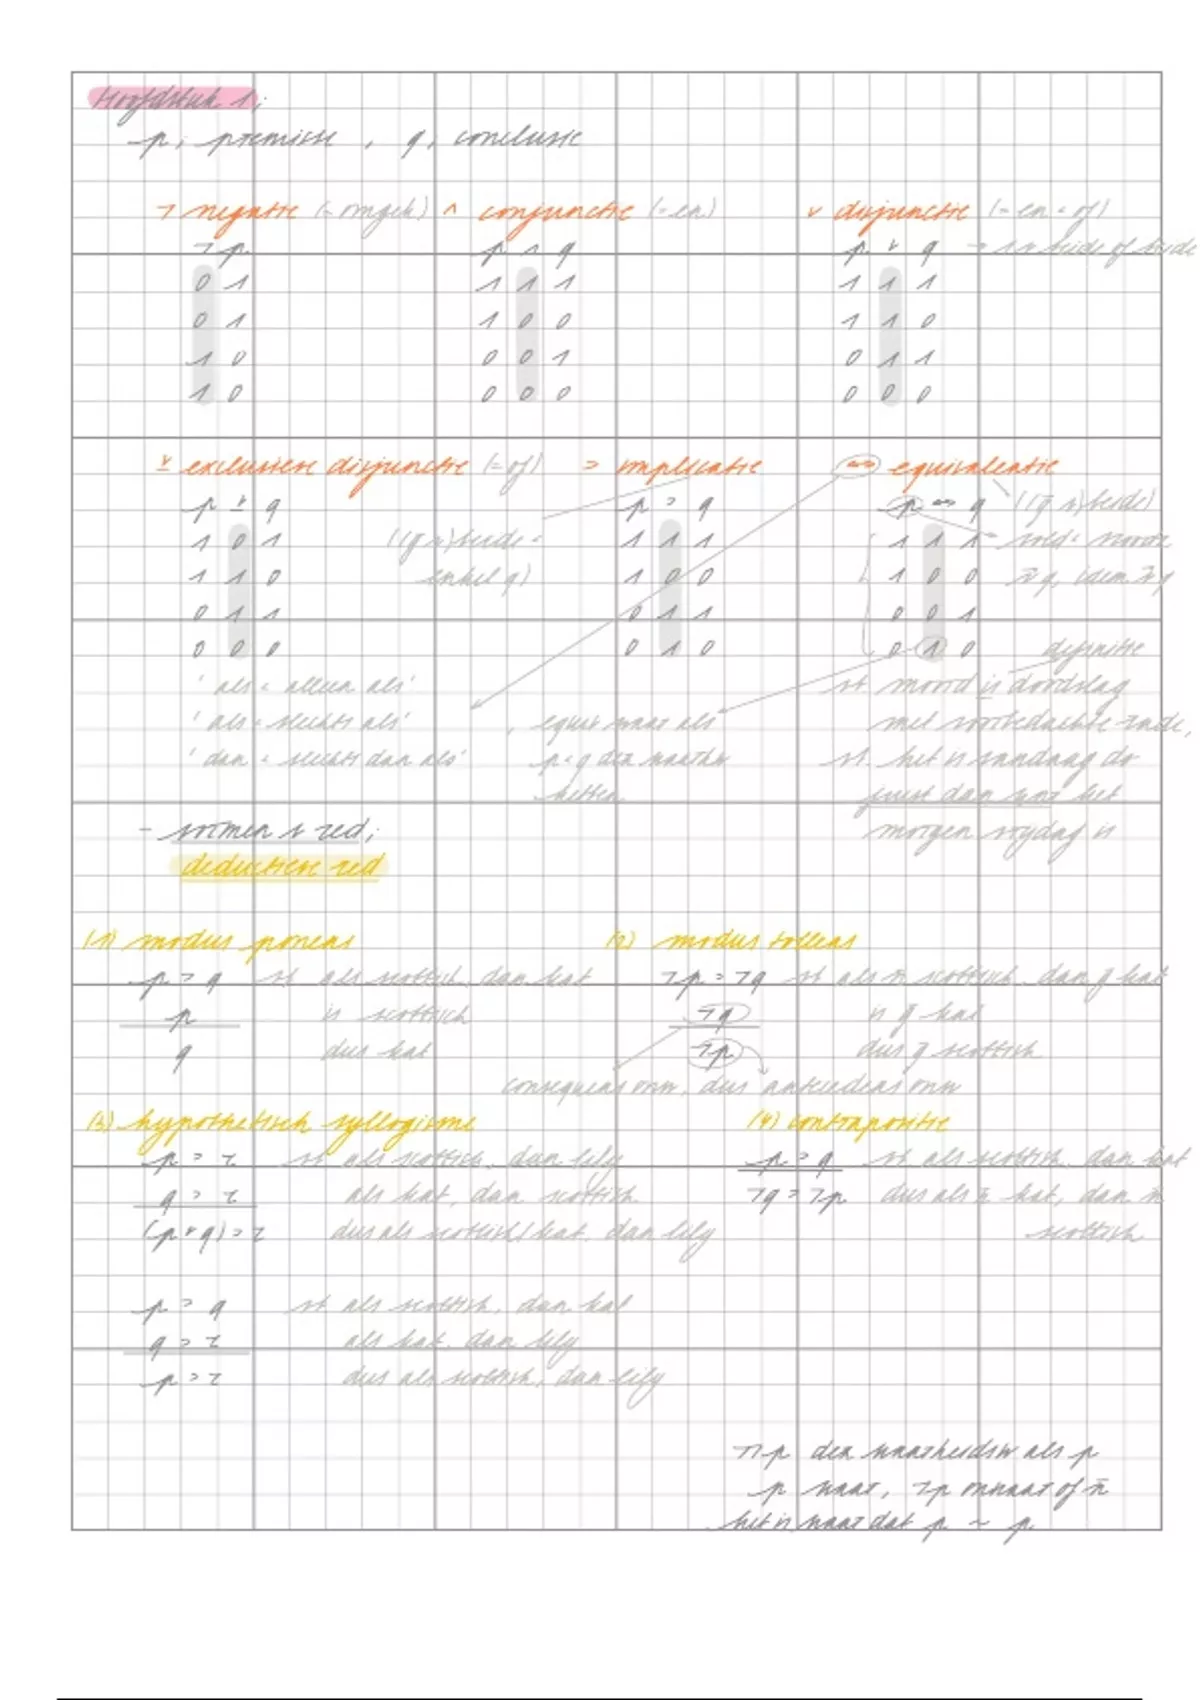 Hoofdstuk 1;
p; premisse, q; conclusie
¬ negatie (= omgek) ∧ conjunctie (= en) ∨ disjunctie (= en = of)
¬ p p ∧ q p ∨ q → 1 v beide of beide
0 1 1 1 1 1 1 1
0 1 1 0 0 1 1 0
1 0 0 0 1 0 1 1
1 0 0 0 0 0 0 0
⊻ exclusieve disjunctie (= of) ⊃ implicatie ⇔ equivalentie
p ⊻ q p ⊃ q p ⇔ q
1 0 1 1 1 1 1 1 1
1 1 0 1 0 0 1 0 0
0 1 1 0 1 1 0 0 1
0 0 0 0 1 0 0 1 0
beide =
enkel q)
definitie
' als = alleen als' vb. moord is doodslag
' als = slechts als' , equiv waar als met voorbedachte rade,
' dan = slechts dan als' p = q dez waarhw vb. het is vandaag do
hebben juist dan wnr het
morgen vrijdag is
- vormen v red;
deductieve red
(1) modus ponens (2) modus tollens
p ⊃ q vb als scottish, dan kat ¬p ⊃ ¬q vb als n̄ scottish, dan g̅ kat
p is scottish ¬q is g̅ kat
q dus kat ¬p dus g̅ scottish
consequens onw, dus antecedens onw
(3) hypothetisch syllogisme (4) contrapositie
p ⊃ r vb als scottish, dan lily p ⊃ q vb als scottish, dan kat
q ⊃ r als kat, dan scottish ¬q ⊃ ¬p dus als n̄ kat, dan n̄
(p ∨ q) ⊃ r dus als scottish/kat, dan lily scottish
p ⊃ q vb als scottish, dan kat
q ⊃ r als kat, dan lily
p ⊃ r dus als scottish, dan lily
¬¬p dez waarheidsw als p
p waar, ¬p onwaar of n̄
het is waar dat p ~ p